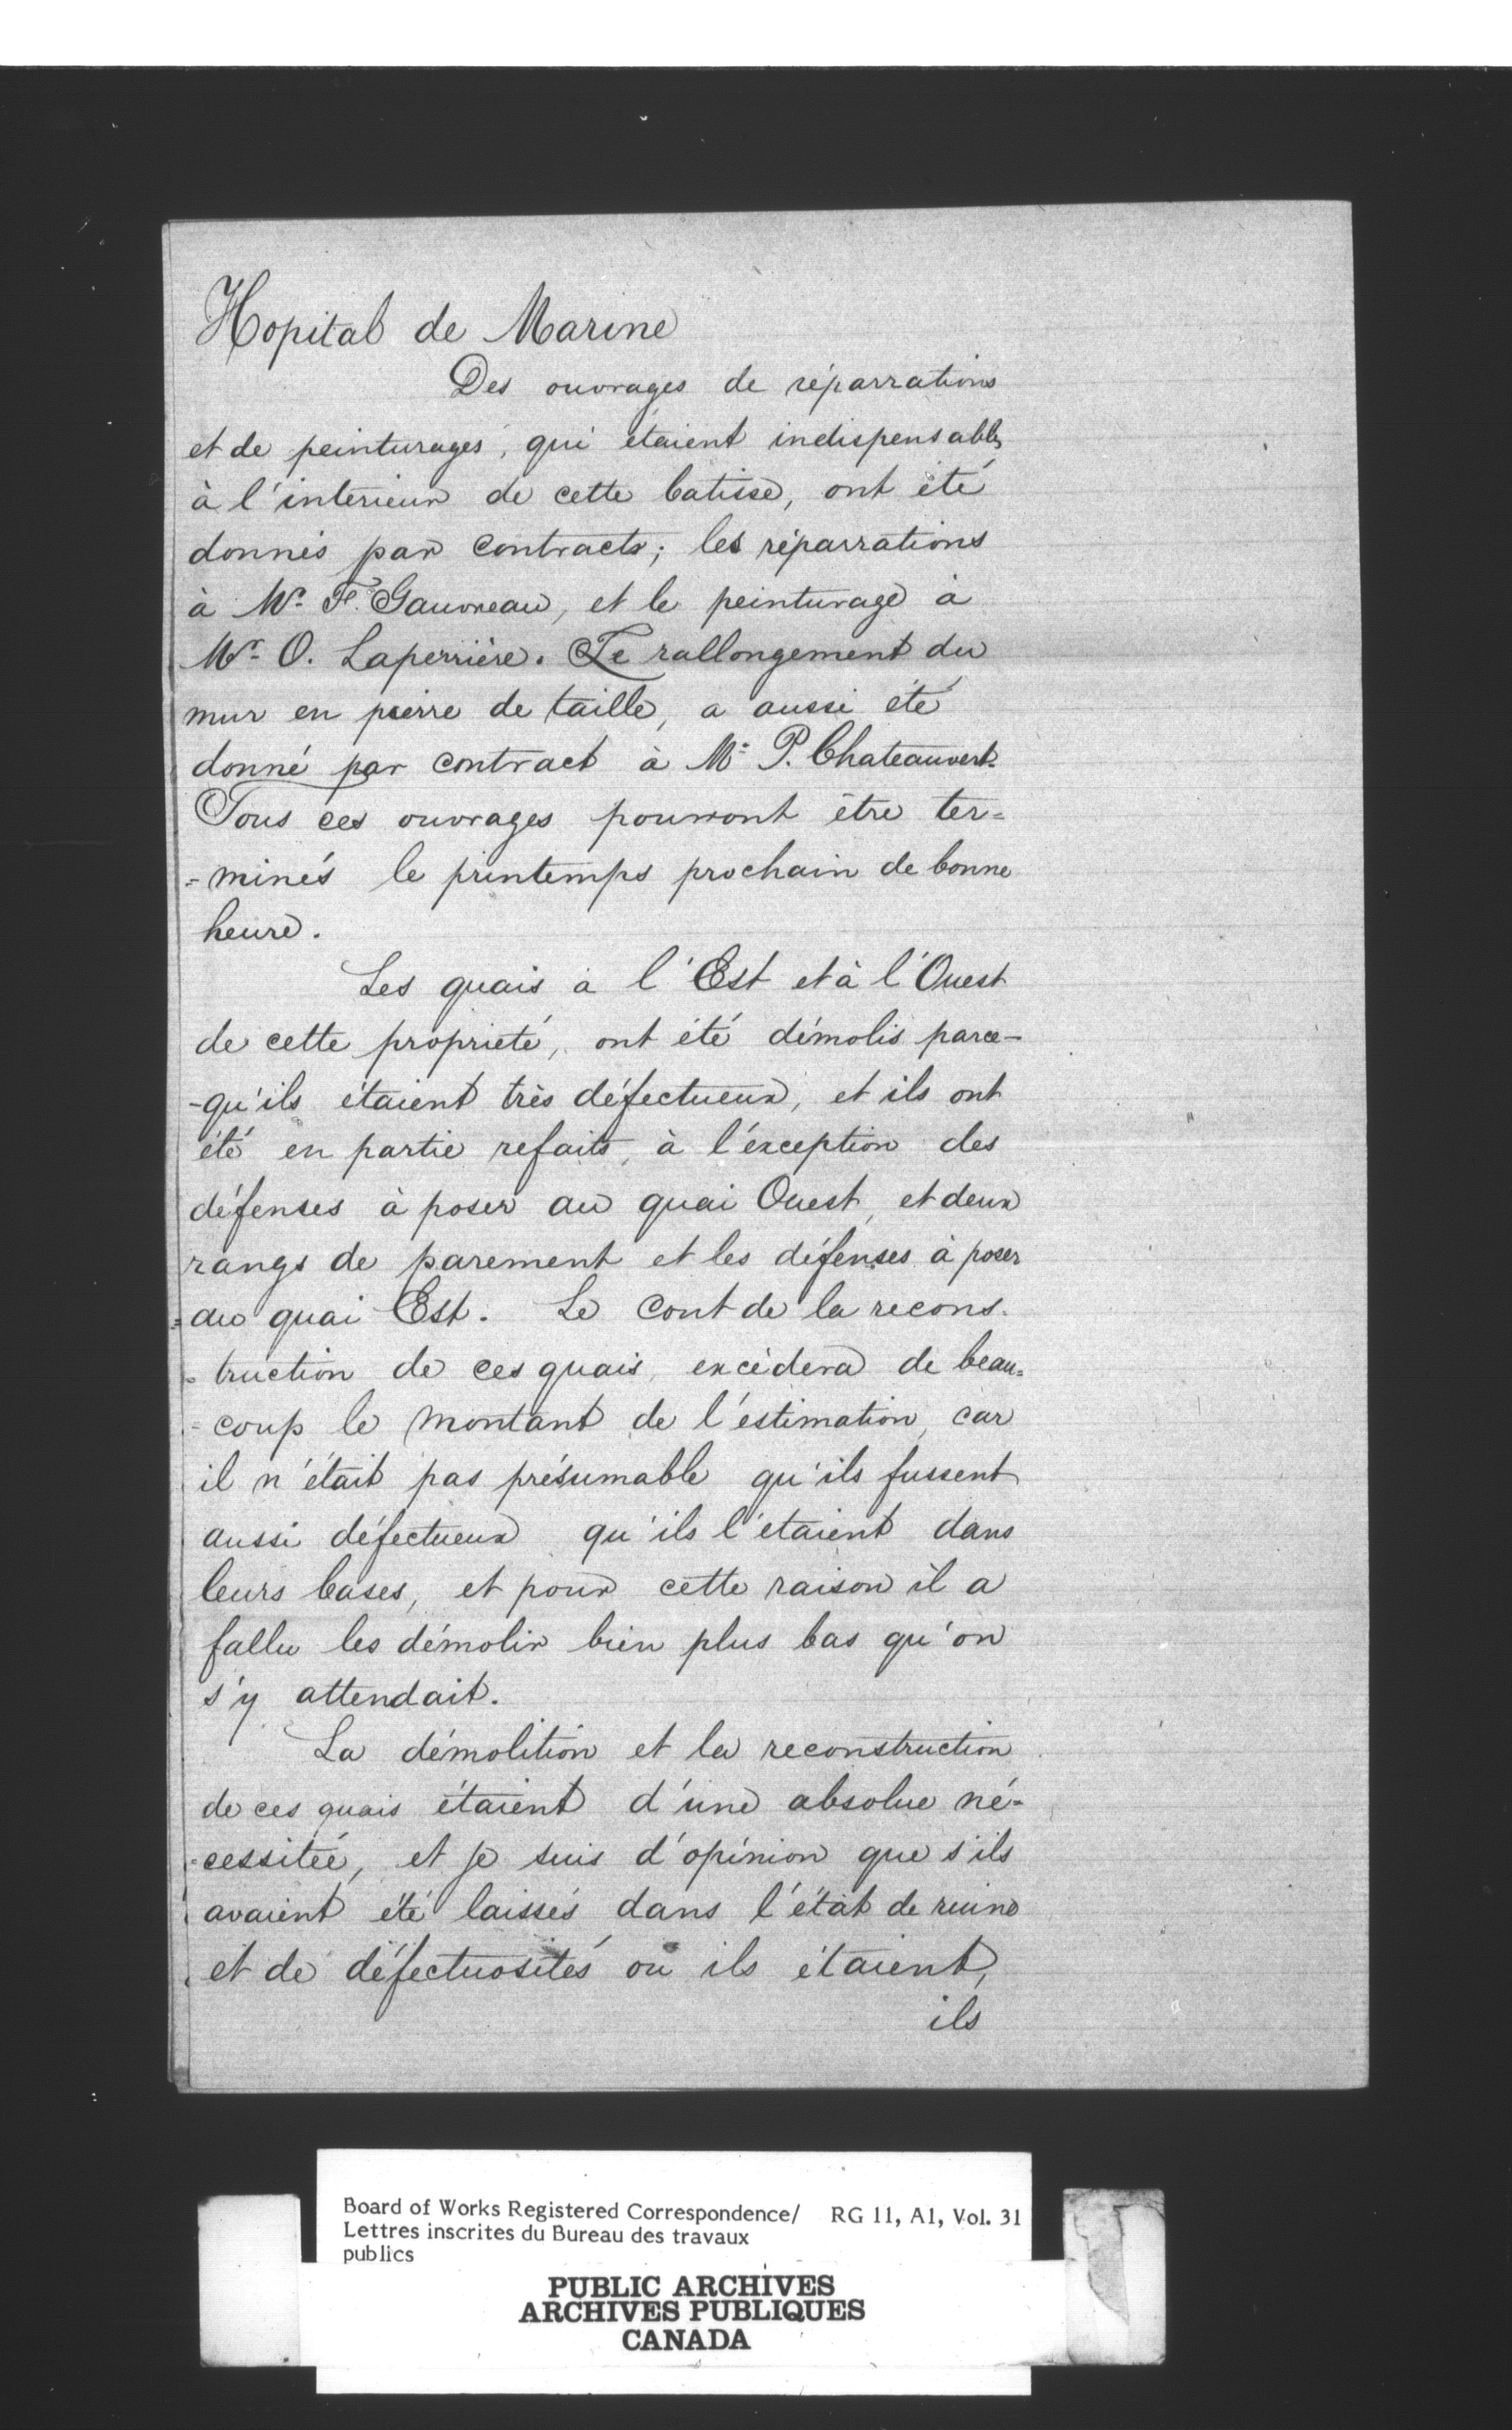 Hopital de Marine
Des ouvrages de réparrations
et de peinturages, qui étaient indispensables
à l'intérieur de cette batisse, ont été
donnés par contracts; les réparrations
à Mr. F. Gauvreau, et le peinturage à
Mr. O. Laperrière. Le rallongement du
mur en pierre de taille, a aussi été
donné par contract à Mr. P. Chateauvert.
Tous ces ouvrages pourront être ter=
=minés le printemps prochain de bonne
heure.
Les quais à l'Est et à l'Ouest
de cette proprieté, ont été démolis parce-
-qu'ils étaient très défectueux, et ils ont
été en partie refaits, à l'éxception des
défenses à poser au quai Ouest, et deux
rangs de parement et les défenses à poser
=au quai Est. Le Cout de la recons-
=truction de ces quais, excèdera de beau=
=coup le montant de l'éstimation, car
il n'était pas présumable qu'ils fussent
aussi défectueux qu'ils l'étaient dans
leurs bases, et pour cette raison il a
fallu les démolir bien plus bas qu'on
s'y attendait.
La démolition et la reconstruction
de ces quais étaient d'une absolue né=
=cessitée, et je suis d'opinion que s'ils
avaient été laissés dans l'état de ruine
et de défectuosités où ils étaient,
ils
Board of Works Registered Correspondence/ RG 11, A1, Vol. 31
Lettres inscrites du Bureau des travaux
publics
PUBLIC ARCHIVES
ARCHIVES PUBLIQUES
CANADA